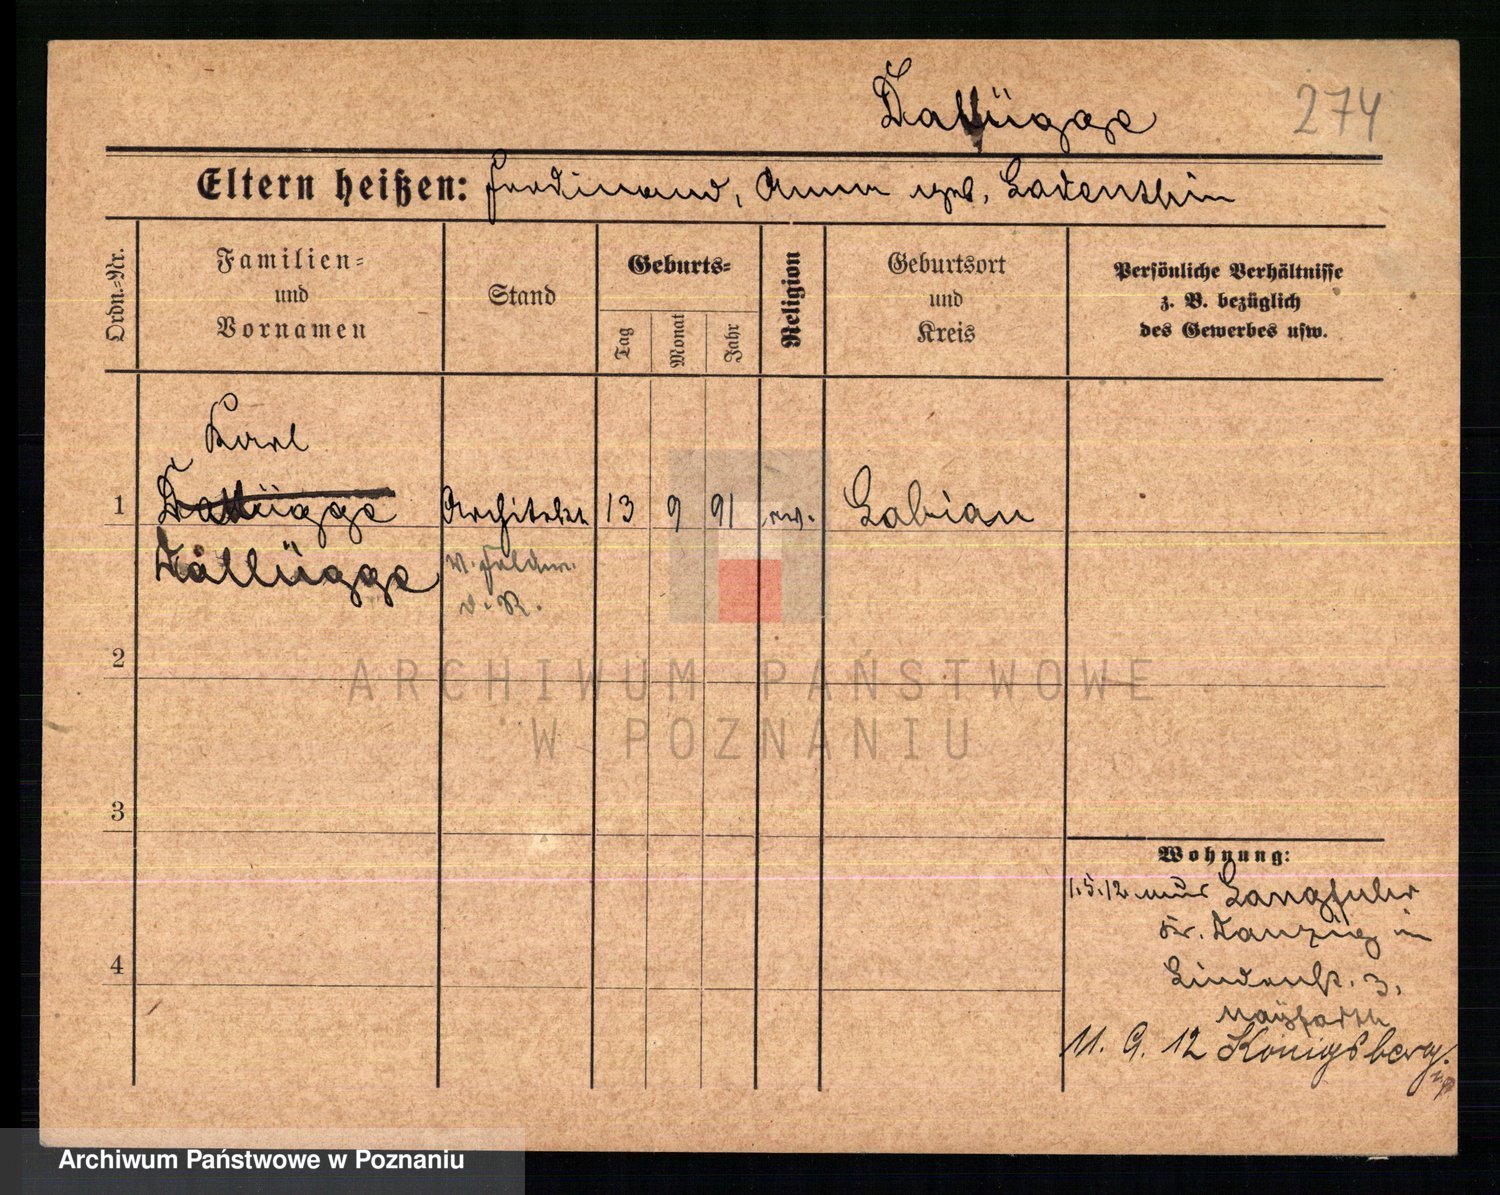 Dallügge
274
Eltern heißen: Ferdinand, Anna geb. Ladenthin
Ordn.-Nr.
Familien-
und
Vornamen
Stand
Geburts-
Tag
Monat
Jahr
Religion
Geburtsort
und
Kreis
Persönliche Verhältnisse
z. B. bezüglich
des Gewerbes usw.
Karl
1 Dallügge Architekt 13 9 91 ev. Labian
Dallügge
d. R.
2
3
4
Wohnung:
1.5.12 aus Langfuhr
Kr. Danzig in
Lindenstr. 3,
Mayfarth
11. 9. 12 Königsberg.
ARCHIWUM PAŃSTWOWE
W POZNANIU
Archiwum Państwowe w Poznaniu